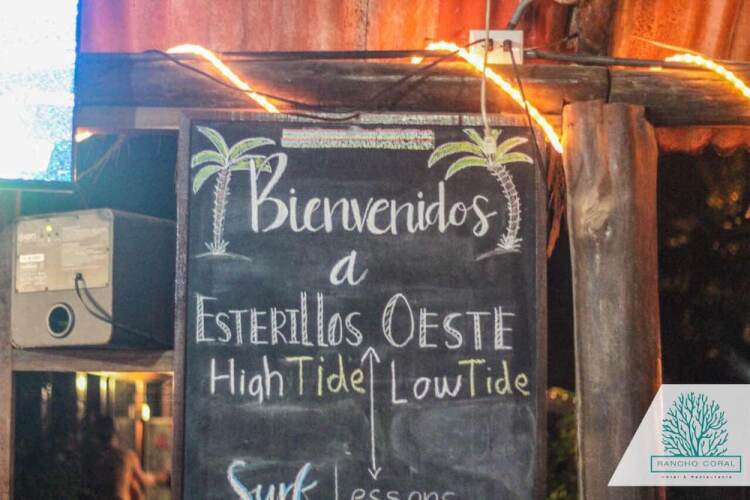 Bienvenidos
a
ESTERIllOS OESTE
High Tide Low Tide
Surf Lessons
RANCHO CORAL
Hotel & Restaurante